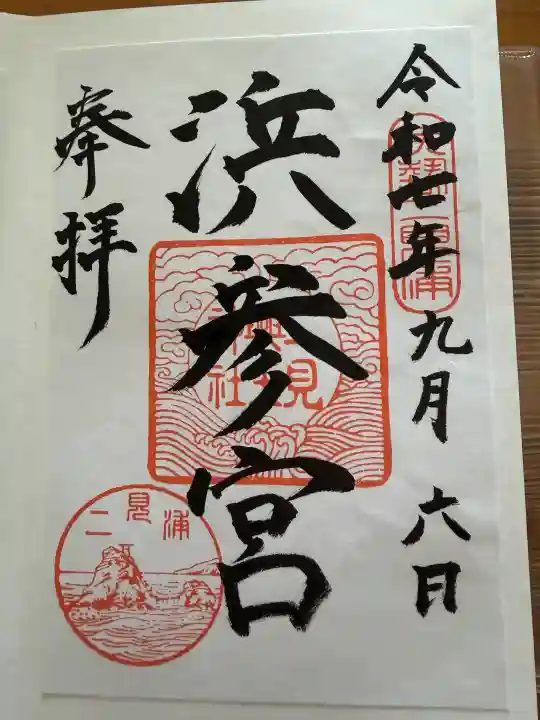 令和七年 九月 六日
伊勢二見浦
浜参宮
二見
興玉
神社
奉拝
二見浦